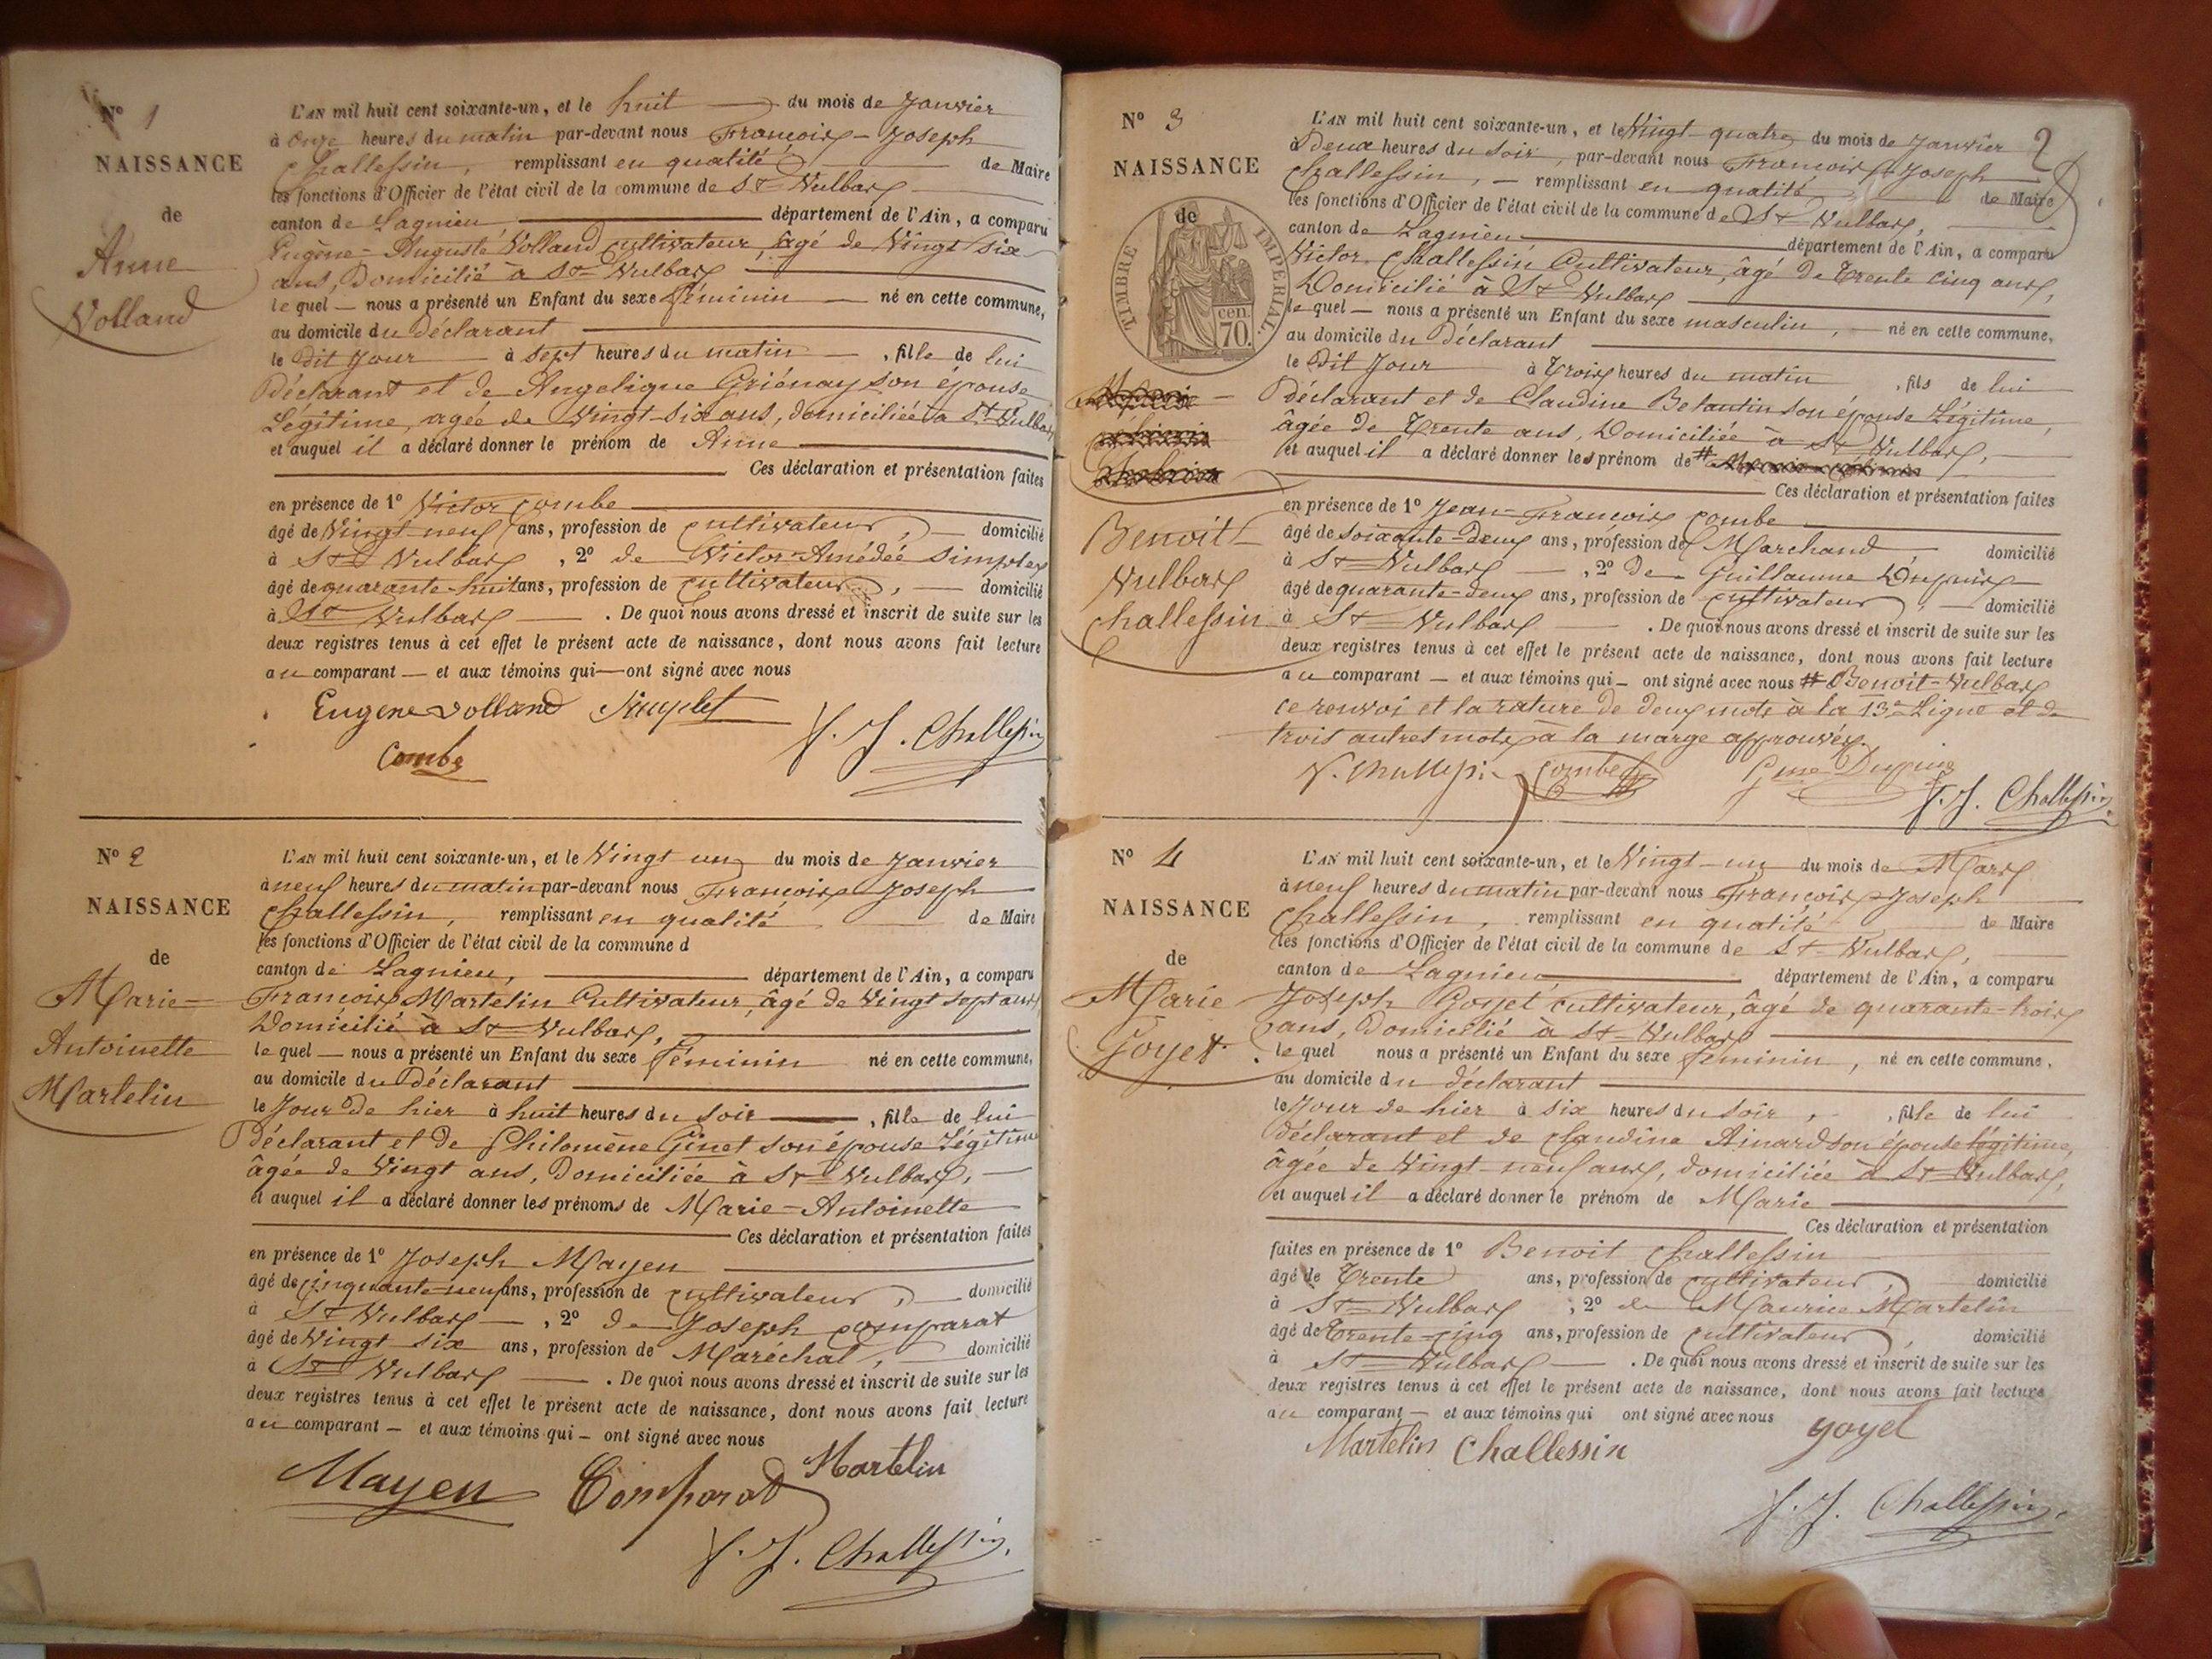 N° 1
NAISSANCE
de
Anne
Volland
L'AN mil huit cent soixante-un, et le huit du mois de Janvier
à onze heures du matin par-devant nous François-Joseph
Challessin, remplissant en qualité de Maire
les fonctions d'Officier de l'état civil de la commune de St Vulbas
canton de Lagnieu département de l'Ain, a comparu
Eugène-Auguste Volland cultivateur, âgé de Vingt six
ans, Domicilié à St Vulbas
le quel nous a présenté un Enfant du sexe féminin né en cette commune,
au domicile du Déclarant
le Dit Jour à sept heures du matin, fille de lui
Déclarant et de Angelique Griénay son épouse
Légitime, agée de Vingt-six ans, domiciliée à St Vulbas
et auquel il a déclaré donner le prénom de Anne
Ces déclaration et présentation faites
en présence de 1° Victor Combe
âgé de Vingt-neuf ans, profession de cultivateur, domicilié
à St Vulbas, 2° de Victor-Amédée Simplet
âgé de quarante-huit ans, profession de cultivateur, domicilié
à St Vulbas. De quoi nous avons dressé et inscrit de suite sur les
deux registres tenus à cet effet le présent acte de naissance, dont nous avons fait lecture
au comparant — et aux témoins qui — ont signé avec nous
Eugene volland Simplet
F. J. Challessin
Combe
N° 2
NAISSANCE
de
Marie-
Antoinette
Martelin
L'AN mil huit cent soixante-un, et le Vingt un du mois de Janvier
à neuf heures du matin par-devant nous François Joseph
Challessin, remplissant en qualité de Maire
les fonctions d'Officier de l'état civil de la commune d
canton de Lagnieu, département de l'Ain, a comparu
François Martelin Cultivateur, âgé de Vingt sept ans
Domicilié à St Vulbas,
le quel — nous a présenté un Enfant du sexe féminin né en cette commune,
au domicile du Déclarant
le Jour de hier à huit heures du soir, fille de lui
Déclarant et de Philomène Ginet son épouse Légitime
âgée de Vingt ans, Domiciliée à St Vulbas,
et auquel il a déclaré donner les prénoms de Marie-Antoinette
Ces déclaration et présentation faites
en présence de 1° Joseph Mayen
âgé de cinquante-neuf ans, profession de cultivateur, domicilié
à St Vulbas, 2° de Joseph Comparat
âgé de Vingt six ans, profession de Maréchal, domicilié
à St Vulbas. De quoi nous avons dressé et inscrit de suite sur les
deux registres tenus à cet effet le présent acte de naissance, dont nous avons fait lecture
au comparant — et aux témoins qui — ont signé avec nous
Mayen Comparat Martelin
F. J. Challessin
N° 3
NAISSANCE
de
TIMBRE IMPERIAL.
70. cen.
Benoit-
Vulbas
Challessin
2
L'AN mil huit cent soixante-un, et le Vingt-quatre du mois de Janvier
à Deux heures du soir, par-devant nous François-Joseph
Challessin, — remplissant en qualité de Maire
les fonctions d'Officier de l'état civil de la commune de St Vulbas,
canton de Lagnieu département de l'Ain, a comparu
Victor Challessin Cultivateur, âgé de Trente cinq ans,
Domicilié à St Vulbas
le quel — nous a présenté un Enfant du sexe masculin, né en cette commune,
au domicile du Déclarant
le Dit Jour à Trois heures du matin, fils de lui
Déclarant et de Claudine Betantin son épouse Légitime,
âgée de Trente ans, Domiciliée à St Vulbas,
et auquel il a déclaré donner les prénom de #
Ces déclaration et présentation faites
en présence de 1° Jean-François Combe
âgé de soixante-deux ans, profession de Marchand, domicilié
à St Vulbas, 2° de Guillaume Dupuis
âgé de quarante-deux ans, profession de Cultivateur, domicilié
à St Vulbas. De quoi nous avons dressé et inscrit de suite sur les
deux registres tenus à cet effet le présent acte de naissance, dont nous avons fait lecture
au comparant — et aux témoins qui — ont signé avec nous # Benoit-Vulbas
ce renvoi et la rature de deux mots à la 13e Ligne et de
trois autres mots à la marge approuvés.
V. Challessin Combe Gme Dupuis
F. J. Challessin
N° 4
NAISSANCE
de
Marie
Goyet.
L'AN mil huit cent soixante-un, et le Vingt-un du mois de Mars
à neuf heures du matin par-devant nous François-Joseph
Challessin, remplissant en qualité de Maire
les fonctions d'Officier de l'état civil de la commune de St Vulbas,
canton de Lagnieu département de l'Ain, a comparu
Joseph Goyet cultivateur, âgé de quarante-trois
ans, Domicilié à St Vulbas
le quel nous a présenté un Enfant du sexe féminin, né en cette commune,
au domicile du déclarant
le Jour de hier à six heures du soir, fille de lui
Déclarant et de Claudine Ainard son épouse légitime,
âgée de Vingt-neuf ans, domiciliée à St Vulbas,
et auquel il a déclaré donner le prénom de Marie
Ces déclaration et présentation
faites en présence de 1° Benoit Challessin
âgé de Trente ans, profession de cultivateur, domicilié
à St Vulbas, 2° de Maurice Martelin
âgé de Trente-cinq ans, profession de cultivateur, domicilié
à St Vulbas. De quoi nous avons dressé et inscrit de suite sur les
deux registres tenus à cet effet le présent acte de naissance, dont nous avons fait lecture
au comparant — et aux témoins qui ont signé avec nous
Martelin Challessin goyet
F. J. Challessin